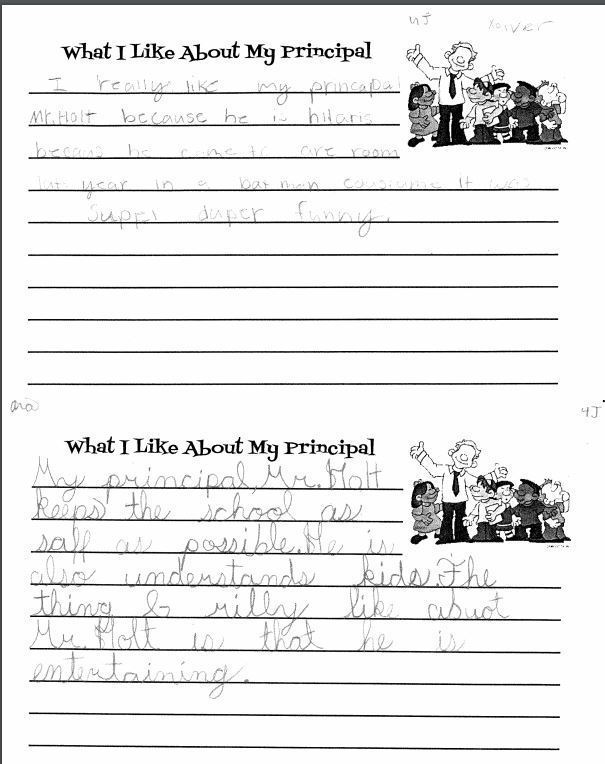 4J Xaiver
What I Like About My Principal
I really like my princapal
Mr. Holt because he is hilaris
becaus he came to are room
last year in a bat man consiume It was
Suppr duper funny.
ana 4J
What I Like About My Principal
My principal, Mr. Holt
keeps the school as
saff as possible. He is
also understands kids. The
thing I rilly like abuot
Mr. Holt is that he is
entertaining.